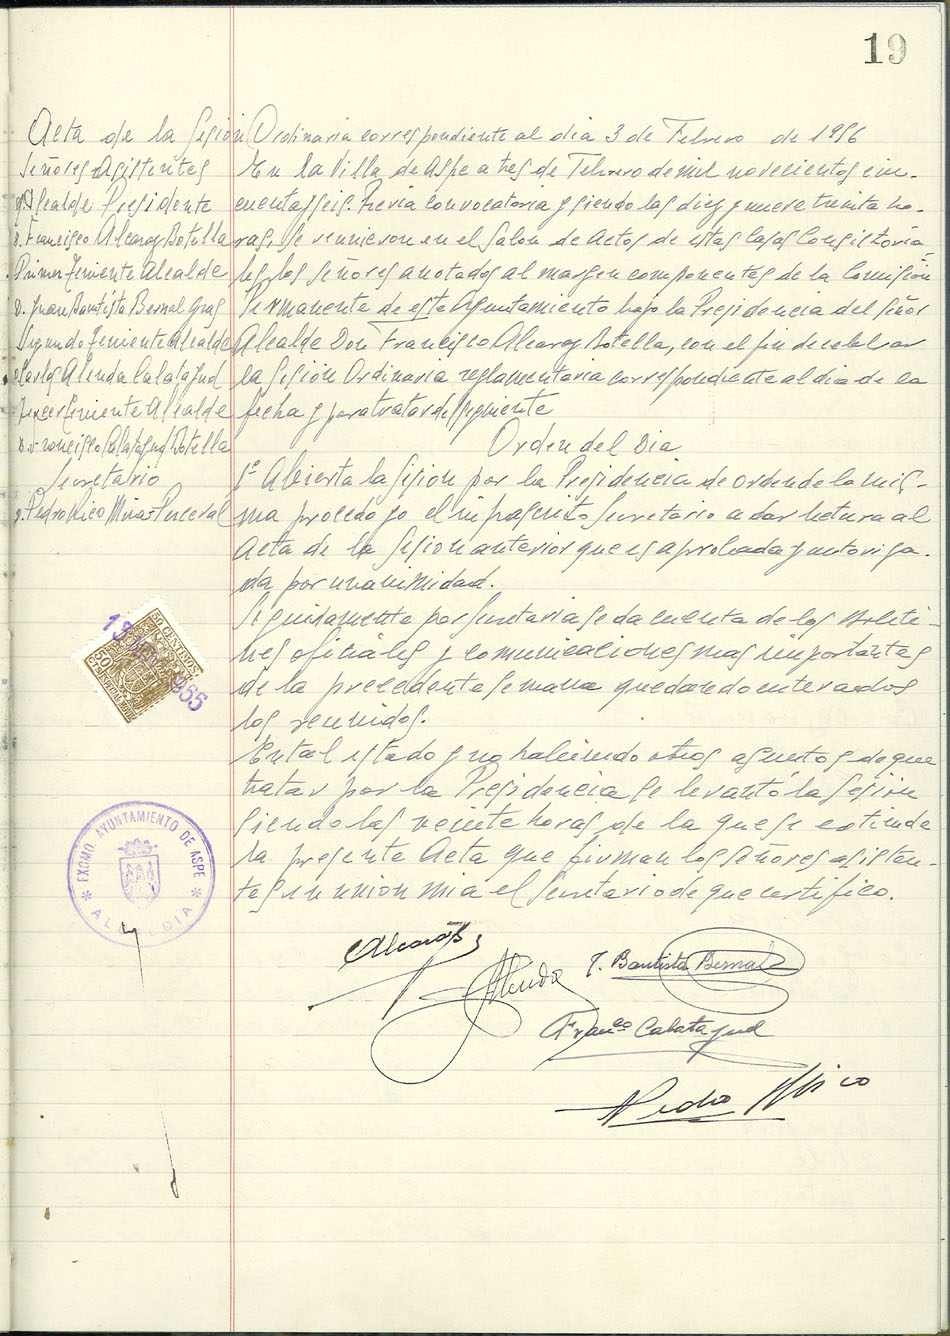 19
Acta de la Sesión Ordinaria correspondiente al dia 3 de Febrero de 1956
Señores Asistentes
Alcalde Presidente
D. Francisco Alcaraz Botella
Primer Teniente Alcalde
D. Juan Bautista Bernal
Segundo Teniente Alcalde
Carlos Alenda Calatayud
Tercer Teniente Alcalde
D. Francisco Calatayud Botella
Secretario
D. Pedro Rico Mira-Perceval
En la Villa de Aspe a tres de Febrero de mil novecientos cin-
cuenta y seis. Previa convocatoria y siendo las diez y nueve treinta ho-
ras, se reunieron en el Salon de Actos de estas Casas Consistoria
les los Señores anotados al margen componentes de la Comision
Permanente de este Ayuntamiento bajo la Presidencia del Señor
Alcalde Don Francisco Alcaraz Botella, con el fin de celebrar
la Sesion Ordinaria reglamentaria correspondiente al dia de la
fecha y para tratar del siguiente
Orden del Dia
1º Abierta la Sesion por la Presidencia de orden de la mis-
ma procedo yo el infrascrito Secretario a dar lectura al
Acta de la Sesion anterior que es aprobada y autoriza-
da por unanimidad.
Seguidamente por Secretaria se da cuenta de los Boleti-
nes oficiales y comunicaciones mas importantes
de la precedente semana quedando enterados
los reunidos.
En tal estado y no habiendo otros asuntos de que
tratar por la Presidencia se levantó la Sesion
siendo las veinte horas, de la que se extiende
la presente Acta que firman los Señores asisten-
tes en union mia el Secretario de que certifico.
50 CENTIMOS
50
CTS
13 1955
EXCMO. AYUNTAMIENTO DE ASPE
* ALCALDIA *
Alcaraz
Alenda
J. Bautista Bernal
Franco Calatayud
Pedro Rico